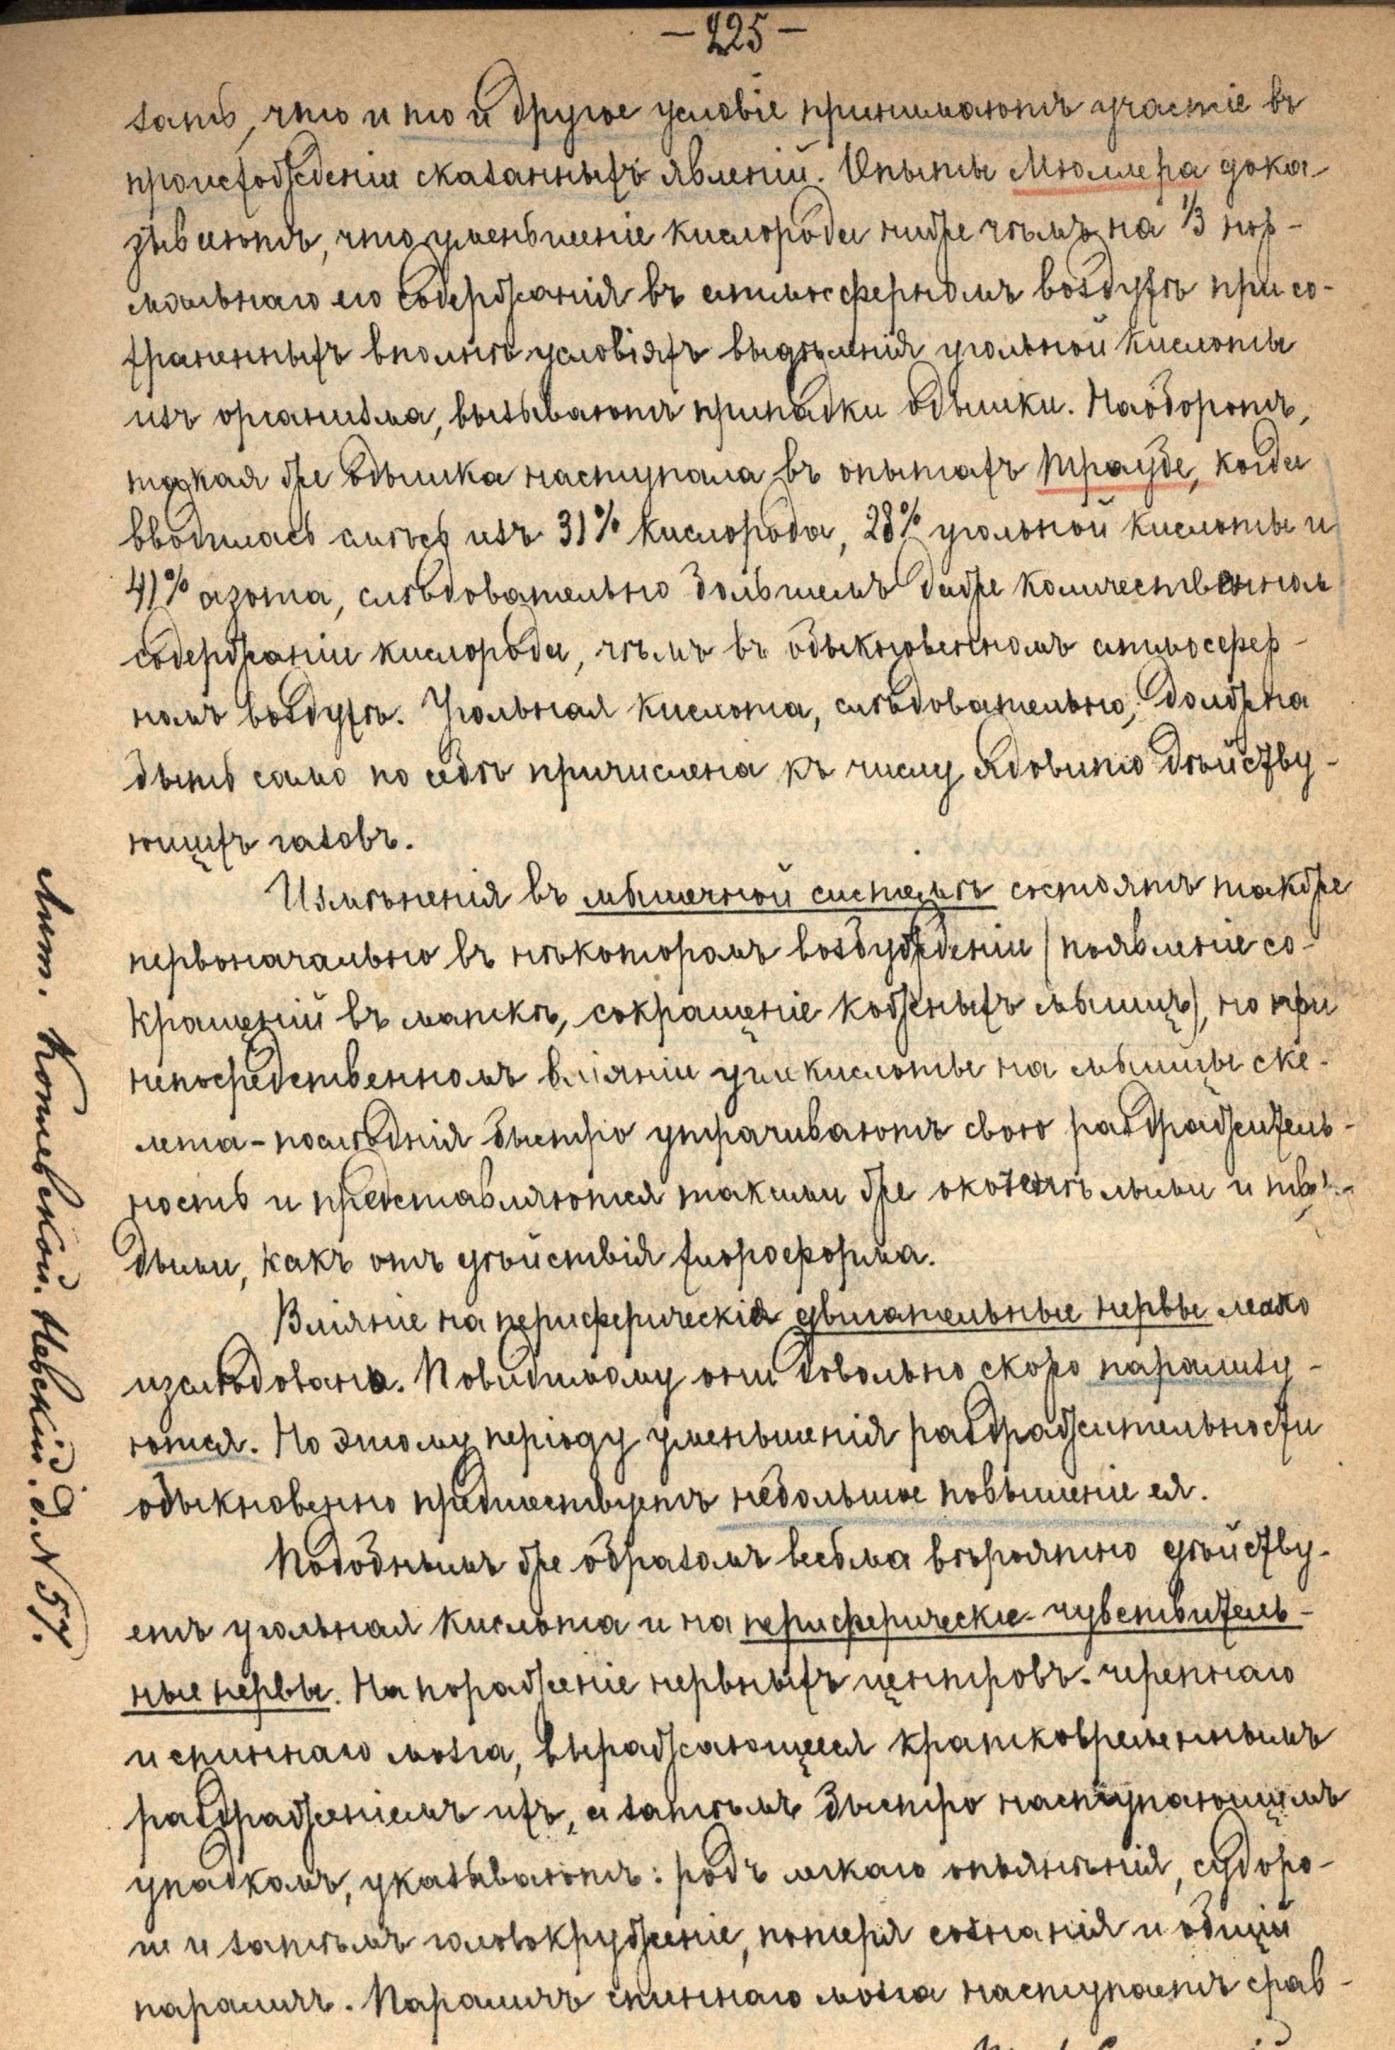 — 225 —
зать, что и то и другое условіе принимаютъ участіе въ
происхожденіи сказанныхъ явленій. Опыты Мюллера дока-
зываютъ, что уменьшеніе кислорода ниже чѣмъ на 1/3 нор-
мальнаго его содержанія въ атмосферномъ воздухѣ при со-
храненныхъ вполнѣ условіяхъ выдѣленія угольной кислоты
изъ организма, вызываютъ припадки одышки. Наоборотъ,
такая же одышка наступала въ опытахъ Траубе, когда
вводилась смѣсь изъ 31% кислорода, 28% угольной кислоты и
41% азота, слѣдовательно большемъ даже количественномъ
содержаніи кислорода, чѣмъ въ обыкновенномъ атмосфер-
номъ воздухѣ. Угольная кислота, слѣдовательно, должна
быть само по себѣ причислена къ числу ядовито дѣйству-
ющихъ газовъ.
Измѣненія въ мышечной системѣ состоятъ также
первоначально въ нѣкоторомъ возбужденіи (появленіе со-
кращеній въ маткѣ, сокращеніе кожныхъ мышцъ), но при
непосредственномъ вліяніи углекислоты на мышцы ске-
лета - послѣднія быстро утрачиваютъ свою раздражитель-
ность и представляются такими же окоченѣлыми и твер-
дыми, какъ отъ дѣйствія хлороформа.
Вліяніе на периферическія двигательные нервы мало
изслѣдовано. Повидимому они довольно скоро парализу-
ются. Но этому періоду уменьшенія раздражительности
обыкновенно предшествуетъ небольшое повышеніе ея.
Подобнымъ же образомъ весьма вѣроятно дѣйству-
етъ угольная кислота и на периферическіе чувствитель-
ные нервы. На пораженіе нервныхъ центровъ - черепнаго
и спиннаго мозга, выражающееся кратковременнымъ
раздраженіемъ ихъ, а затѣмъ быстро наступающимъ
упадкомъ, указываютъ: родъ легкаго опьянѣнія, судоро-
ги и затѣмъ головокруженіе, потеря сознанія и общій
параличъ. Параличъ спиннаго мозга наступаетъ срав-
Лит. Котлевской. Невскій. д. N 57.